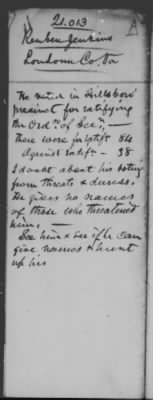 21.013
A
Reuben Jenkins
Loudoun Co. Va
The vote in Hillsboro'
precinct for ratifying
the Ord^ce of Sec^n,
there were for ratif^n 84
Against ratif^n - 38
I doubt about his voting
from threats & duress.
He gives no names
of those who threatened
him. -
See him & see if he can
give names & hunt
up his